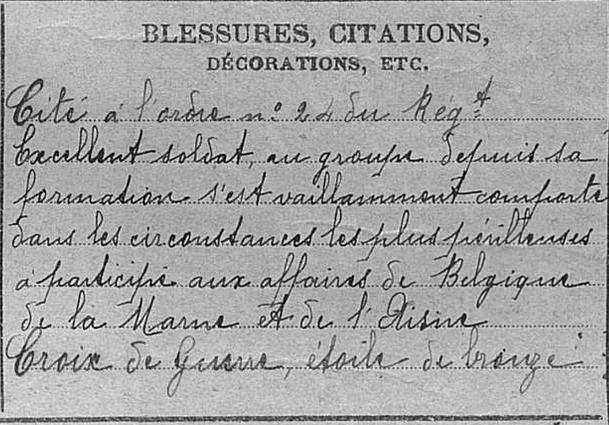 BLESSURES, CITATIONS,
DÉCORATIONS, ETC.
Cité à l'ordre n° 24 du Régt
Excellent soldat, au groupe depuis sa
formation s'est vaillamment comporté
dans les circonstances les plus périlleuses
a participé aux affaires de Belgique
de la Marne et de l'Aisne
Croix de Guerre, étoile de bronze